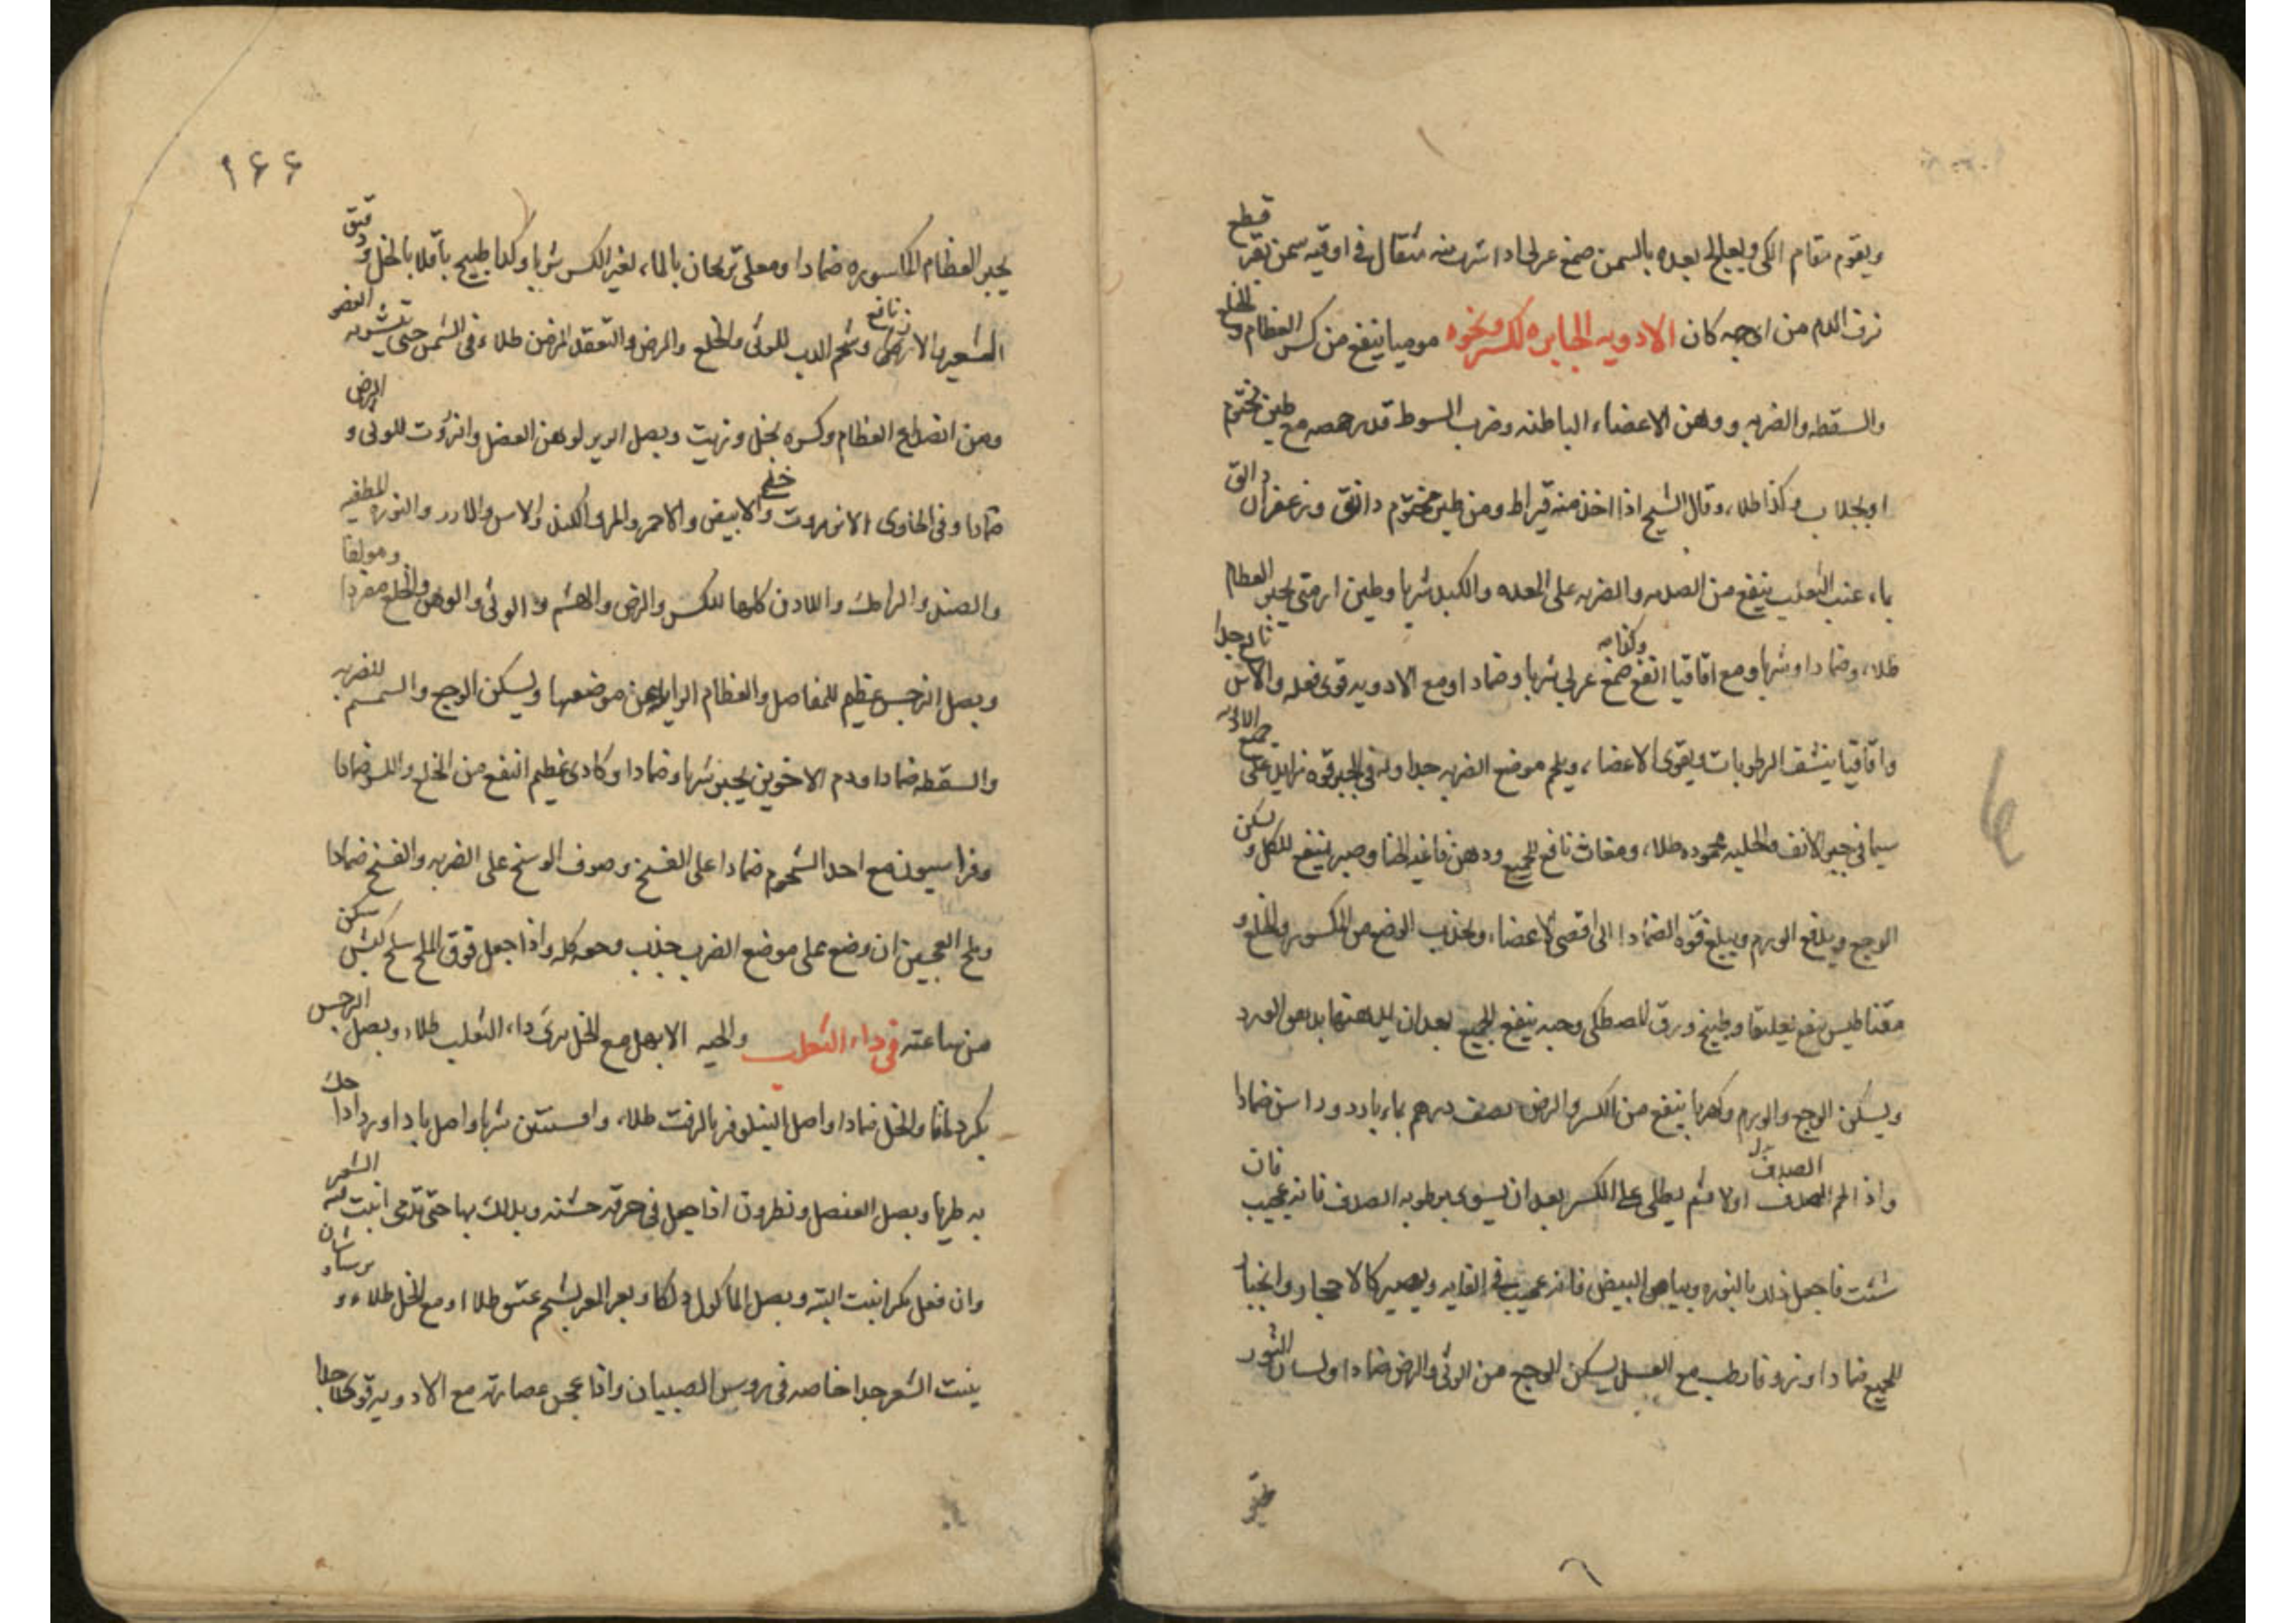 ويقوم مقام الكى ويعلج بعده بالسمن صمغ عربى اذا شرب منه مثقال فى اوقيه سمن بقر قطع
نزف الدم من اى وجه كان الادويه الجابره للكسر ونحوه موميا ينفع من كسر العظام والخلع
والسقطه والضربه ووهن الاعضاء الباطنه وضرب السوط قدر حمصه مع طين مختوم
او بجلاب وكذا طلاء وقال الشيخ اذا اخذ منه قيراط ومن طين مختوم دانق وزعفران دانق
بماء عنب الثعلب ينفع من الصدمه والضربه على المعده والكبد شربا وطين ارمنى يجبر العظام
طلاء وضمادا وشربا ومع اقاقيا انفع وكذا صمغ عربى شربا وضمادا ومع الادويه قوى فعله والاس نافع جدا
واقاقيا ينشف الرطوبات ويقوى الاعضاء ويلحم موضع الضربه جدا وله فى الجبر قوه تزايد على جميع الادويه
سيما فى جبر الانف والحلبه محموده طلاء ومغاث نافع للجميع ودهن فاغيه الحنا وصبر ينفع للكل ويسكن
الوجع ويدفع الورم ويبلغ قوه الضماد الى اقصى الاعضاء ويجذب الوضع من الكسور والخلع و
مقناطيس ينفع تعليقا وطبيخ ورق المصطكى وحبه ينفع الجميع بعد ان يدهنها بدهن الورد
ويسكن الوجع والورم وكهربا ينفع من الكسر والرض نصف درهم بماء بارد وراسن ضمادا
واذا لم الصدف اولا ثم يطلى على الكسر بعد ان يسوى برطوبه الصدف فانه عجيب فان
شئت فاجعل ذلك بالنوره وبياض البيض فانه عجيب فى الغايه ويصير كالاحجار وانجبار
للجميع ضمادا وزوفا رطب مع العسل يسكن الوجع من الوثى والرض ضمادا ولسان الثور
١٦٦
يجبر العظام المكسوره ضمادا ومغلى ترنجان بالماء لغير الكسر شربا وكذا طبيخ باقلا بالخل ودقيق
الشعير نافع وشحم الدب للوثى والخلع والرض والتعقد المزمن طلاء فى الشمس حتى يتشربه العضو
ومن انصداع العظام وكسره بخل وزيت وبصل الزير لوهن العضل وانزروت للوثى والرض
ضمادا وفى الحاوى الانزروت والابيض والاحمر والمر والكندر والاس والنوره المطفيه
والصندل والرامك واللادن كلها للكسر والرض والهشم والوثى والوهن والخلع مفردا ومولفا
وبصل النرجس عظيم للمفاصل والعظام الزايله عن موضعها ويسكن الوجع والسمسم للضربه
والسقطه ضمادا ودم الاخوين يجبر شربا وضمادا وكادى عظيم النفع من الخلع والكسر ضمادا
وفراسيون مع احد الشحوم ضمادا على الفسخ وصوف الوسخ على الضربه والفسخ ضمادا
وملح العجين ان وضع على موضع الضرب جذب وجعه كله واذا جعل فوق الملح سلخ كبش سكن
من ساعته فى داء الثعلب والحيه الابهل مع الخل يبرى داء الثعلب طلاء وبصل النرجس
والخل ضمادا واصل النيلوفر بالزفت طلاء وافسنتين شربا واصل باداورد اذا حك
به طريا وبصل العنصل ونطرون اذا جعل فى خرقه خشنه ودلك بها حتى تدمى انبت له الشعر
وان فعل مكررا نبت البته وبصل الماكول دلكا وبعر المعز بشحم عتيق طلاء او مع الخل طلاء و برسياوشان
ينبت الشعر جدا خاصه فى روس الصبيان واذا عجن عصارته مع الادويه قوى جدا